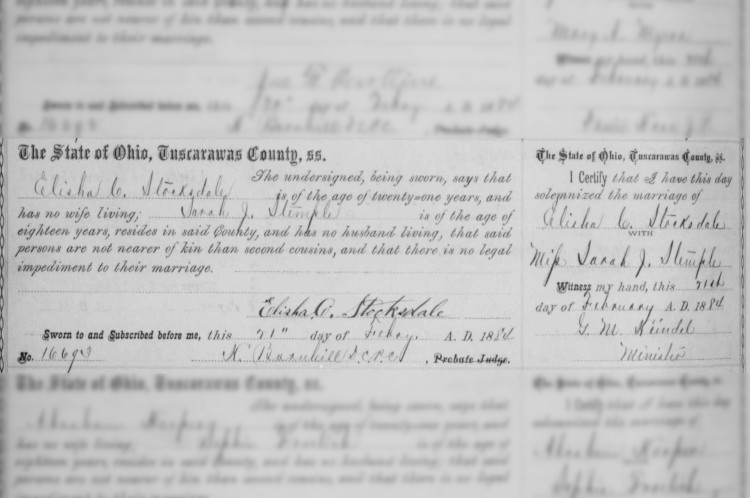 persons are not nearer of kin than second cousins, and that there is no legal
impediment to their marriage.
Sworn to and Subscribed before me, this
Probate Judge.
The State of Ohio, Tuscarawas County, ss.
The undersigned, being sworn, says that
Elisha C. Stocksdale is of the age of twenty-one years, and
has no wife living; Sarah J. Stemple is of the age of
eighteen years, resides in said County, and has no husband living, that said
persons are not nearer of kin than second cousins, and that there is no legal
impediment to their marriage.
Elisha C. Stocksdale
Sworn to and Subscribed before me, this 21" day of Febry. A. D. 1884
No. 16693 Barnhill D.C.P.C. , Probate Judge.
The State of Ohio, Tuscarawas County, ss.
I Certify that I have this day
solemnized the marriage of
Elisha C. Stocksdale
WITH
Miss Sarah J. Stemple
Witness my hand, this 21st
day of February A. D. 1884
G. M. Heindel
Minister
The State of Ohio, Tuscarawas County, ss.
The undersigned, being sworn, says that
is of the age of twenty-one years, and
has no wife living, is of the age of
eighteen years, resides in said County, and has no husband living, that said
persons are not nearer of kin than second cousins, and that there is no legal
impediment to their marriage.
The State of Ohio, Tuscarawas County, ss.
I Certify that I have this day
solemnized the marriage of